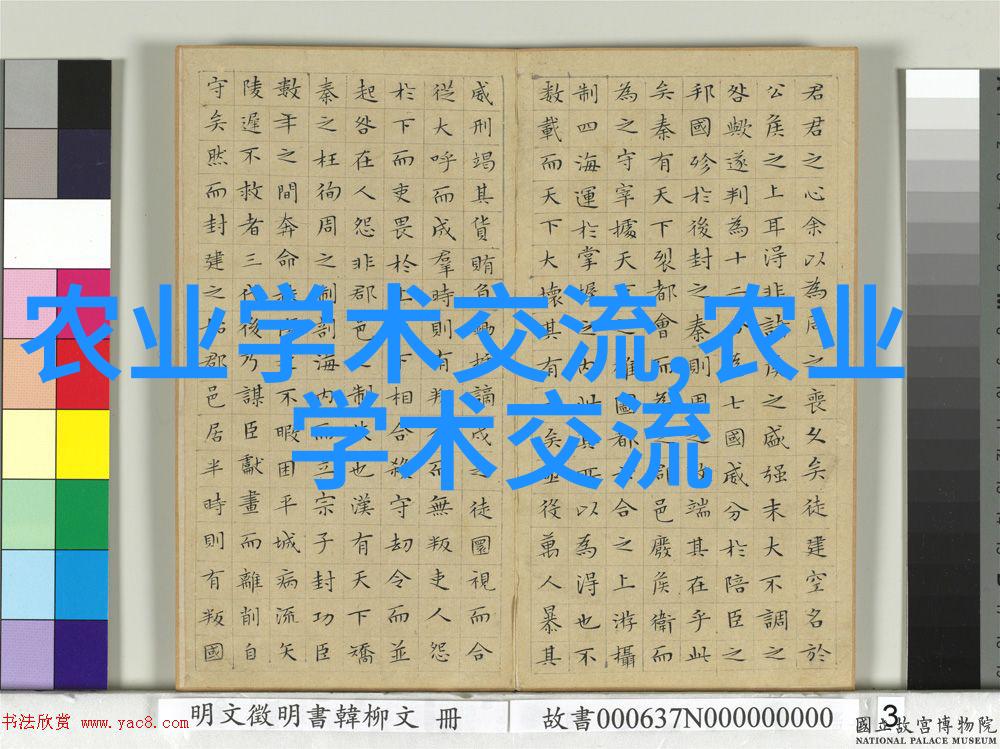 农业学术交流,农业
学术交流
君君之心余以為周之喪久矣徒建空名於
公侯之上耳得非諸侯之盛强末大不調之
咎歟遂判為十二合為七國威分於陪臣之
邦國殄於後封之秦則周之敗端其在乎此
矣秦有天下裂都會而為之郡邑廢侯衛而
為之守宰據天下之雄圖都六合之上游攝
制四海運於掌握之內此其所以為得也不
數載而天下大壞其有由矣亟役萬人暴其
威刑竭其貨賄負鋤梃謫戍之徒圜視而合
從大呼而成羣時則有叛人而無叛吏人怨
於下而吏畏於上下相合殺守劫令而並
起咎在人怨非郡邑之制失也漢有天下矯
秦之枉徇周之制剖海內而立宗子封功臣
數年之間奔命扶傷不暇困平城病流矢
陵遲不救者三代後乃謀臣獻畫而離削自
守矣然而封建之始郡邑居半時則有叛國
书法欣赏 www.yac8.com
明文徵明書韓柳文 冊
故書000637N000000000
3
國立故宮博物院
NATIONAL PALACE MUSEUM